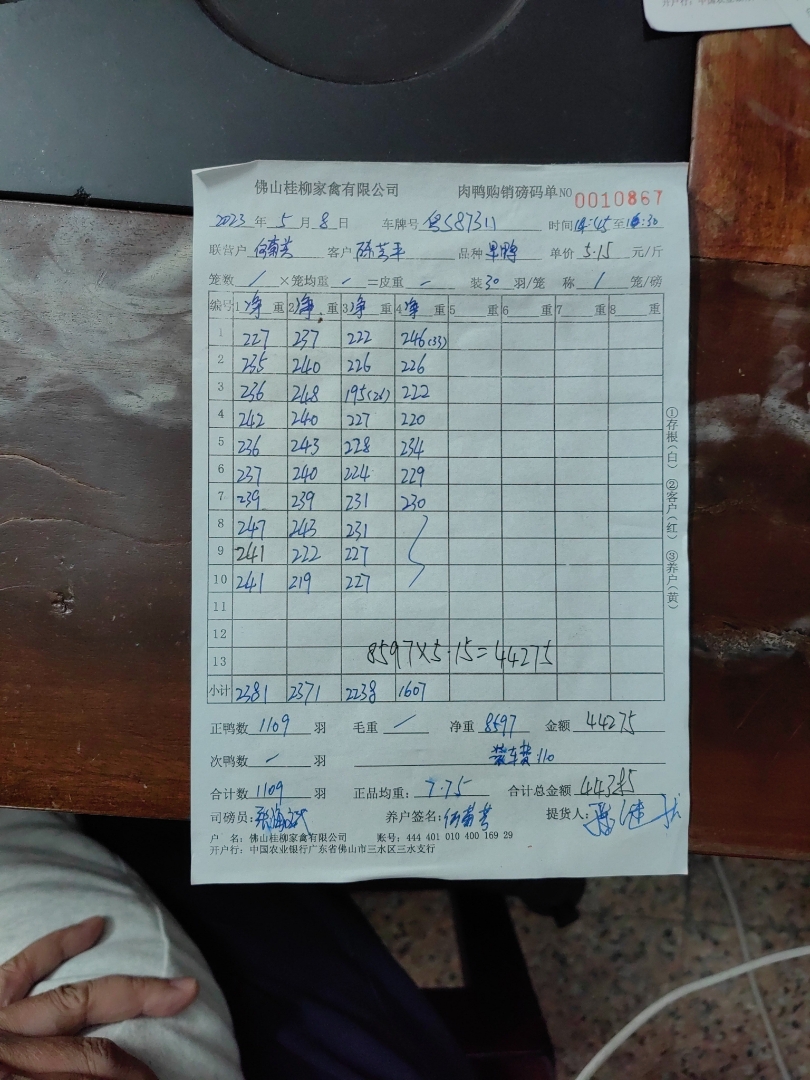 佛山桂柳家禽有限公司 肉鸭购销磅码单NO 0010867
2023 年 5 月 8 日 车牌号 粤S87311 时间 14:45 至 16:30
联营户 何菊芳 客户 品种 单价 5.15 元/斤
笼数 / ×笼均重 - =皮重 - 装 30 羽/笼 称 1 笼/磅
编号 1 净 重 2 净 重 3 净 重 4 净 重 5 重 6 重 7 重 8 重
1 227 237 222 246(33)
2 235 240 226 226
3 236 248 195(26) 222
4 242 240 227 220
5 236 243 228 234
6 237 240 224 229
7 239 239 231 230
8 247 243 231
9 241 222 227
10 241 219 227
11
12
13 8597×5.15=44275
小计 2381 2371 2238 1607
正鸭数 1109 羽 毛重 / 净重 8597 金额 44275
次鸭数 - 羽 装车费110
合计数 1109 羽 正品均重: 7.75 合计总金额
司磅员: 养户签名: 何菊芳 提货人:
户 名: 佛山桂柳家禽有限公司 账号: 444 401 010 400 169 29
开户行: 中国农业银行广东省佛山市三水区三水支行
①存根(白) ②客户(红) ③养户(黄)